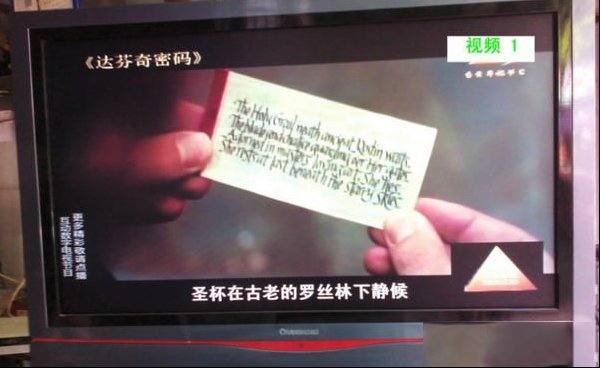 视频 1
《达芬奇密码》
The Holy Grail 'neath ancient Roslin waits
The blade and chalice guarding o'er Her gates
Adorned in masters' loving art, She lies
She rests at last beneath the starry skies
更多精彩敬请点播
互动数字电视节目
圣杯在古老的罗丝林下静候
CHANGHONG